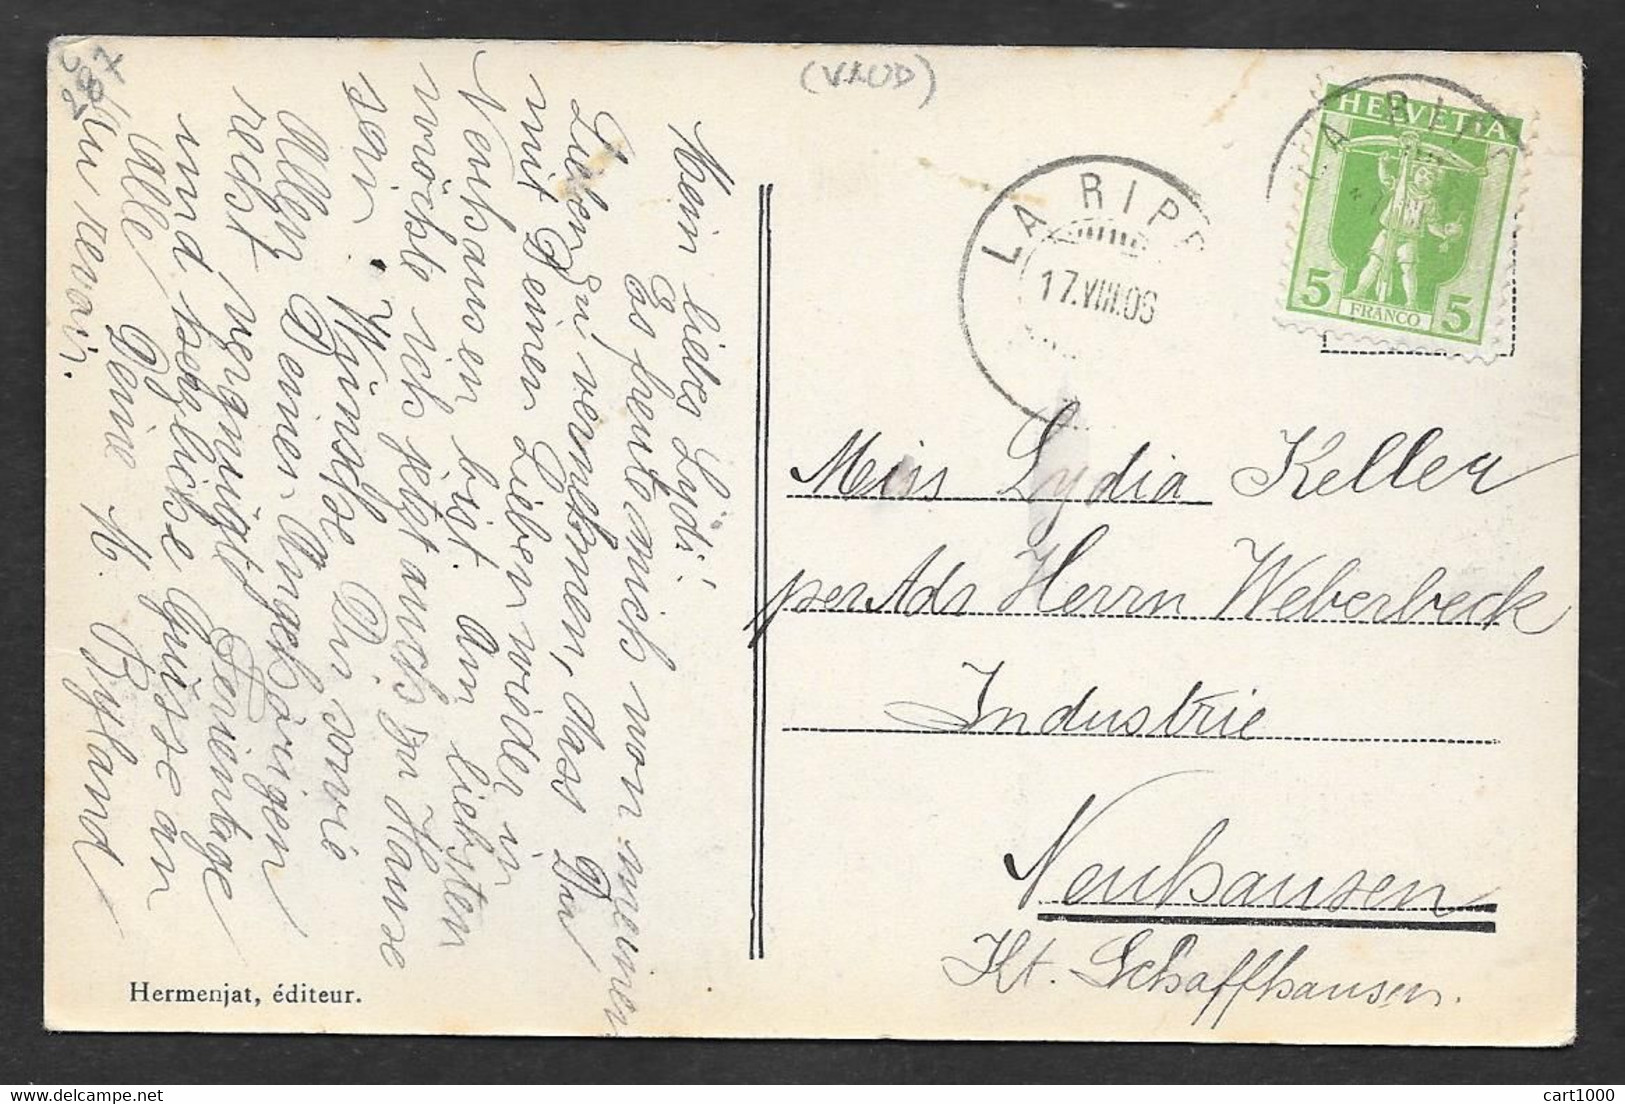 287
(VAUD)
Mein liebes Lydi!
Es freute mich von meinen
Lieben zu vernehmen, dass Du
mit Deinen Lieben wieder in
Neuhausen bist. Am liebsten
möchte ich jetzt auch zu Hause
sein. Wünsche Dir sowie
Allen Deinen Angehörigen
recht vergnügte Ferientage
und herzliche Grüsse an
Alle Deine M. Byland
Au revoir.
Hermenjat, éditeur.
LA RIPE
17.VIII.09
LA RIPE
HELVETIA
5 FRANCO 5
Miss Lydia Keller
per Adr Herrn Weberbeck
Industrie
Neuhausen
Kt. Schaffhausen.
cart1000